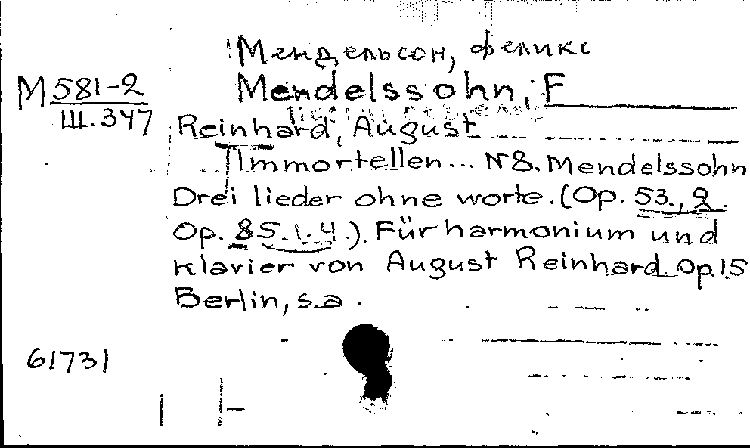 Мендельсон, Феликс
M 581-2
III.347
Mendelssohn, F
Reinhard, August
Immortellen... N8. Mendelssohn
Drei lieder ohne worte. (Op. 53., 2.
Op. 85.1.4.). Für harmonium und
Klavier von August Reinhard. Op.15
Berlin, s.a.
61731